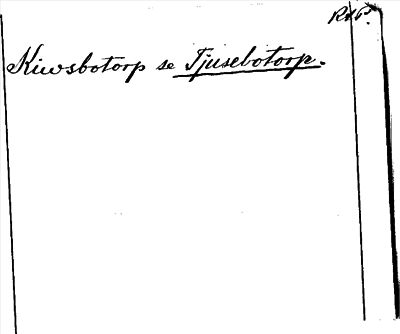 Kiwsbotorp se Tjusebotorp.